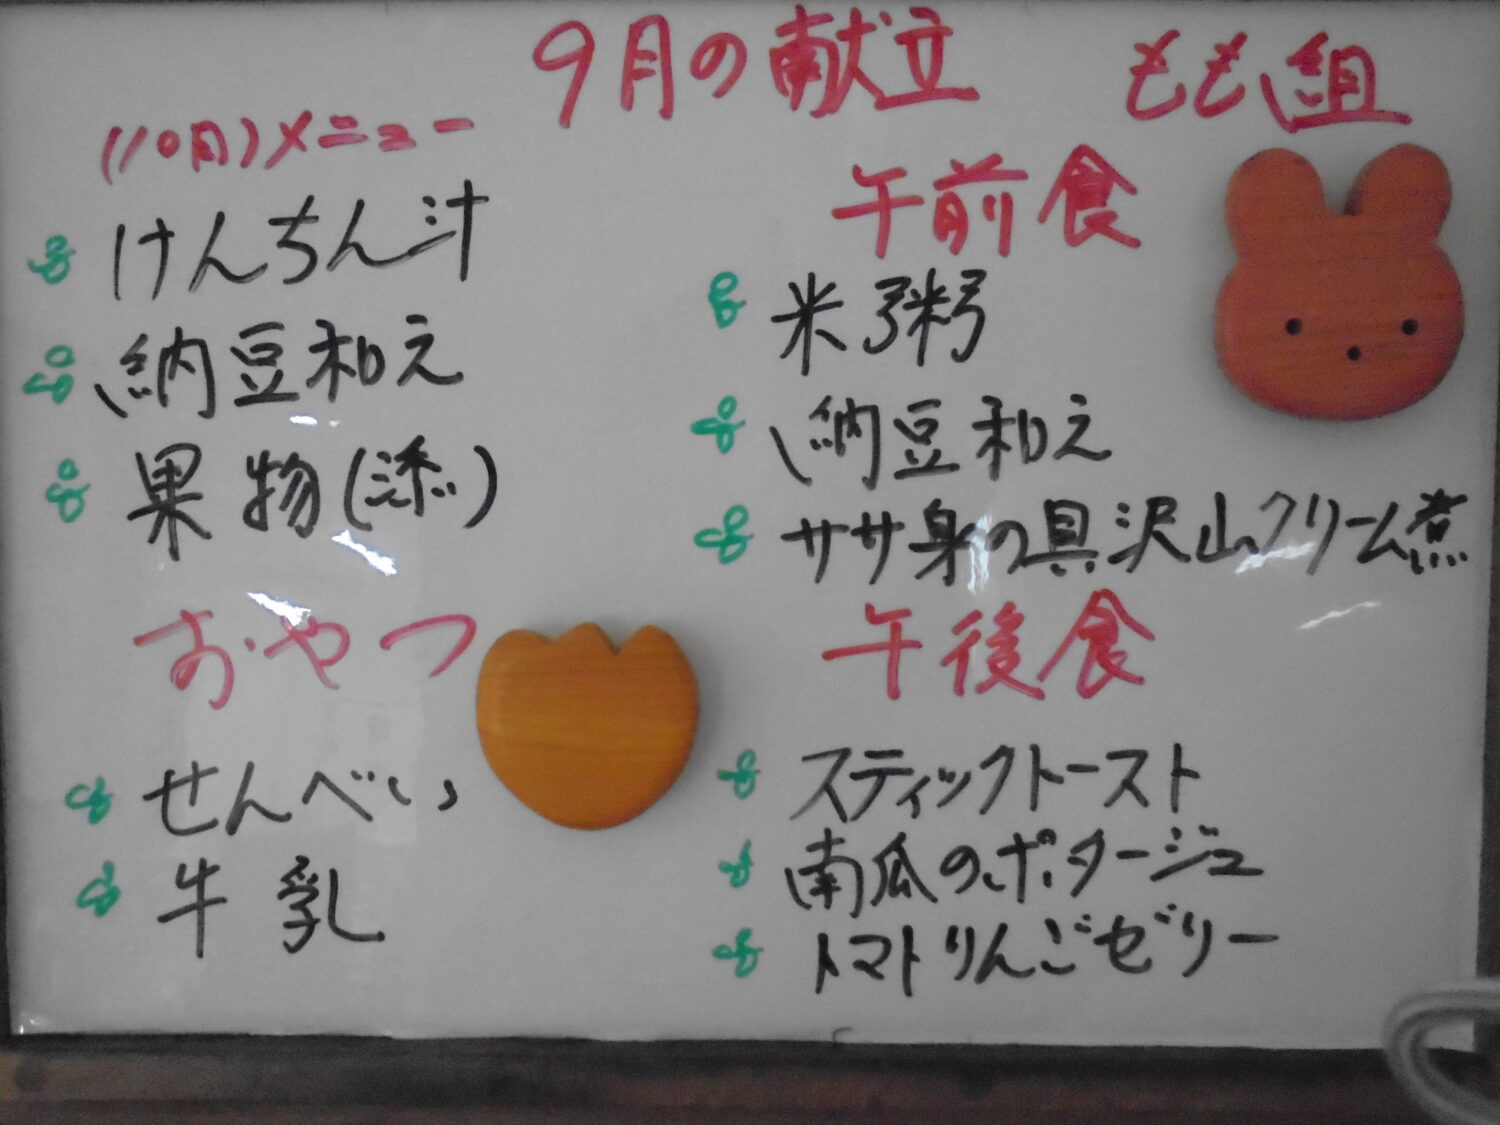 9月の献立 もも組
(10月)メニュー
けんちん汁
納豆和え
果物(添)
おやつ
せんべい
牛乳
午前食
米粥
納豆和え
ササ身の具沢山クリーム煮
午後食
スティックトースト
南瓜のポタージュ
トマトりんごゼリー